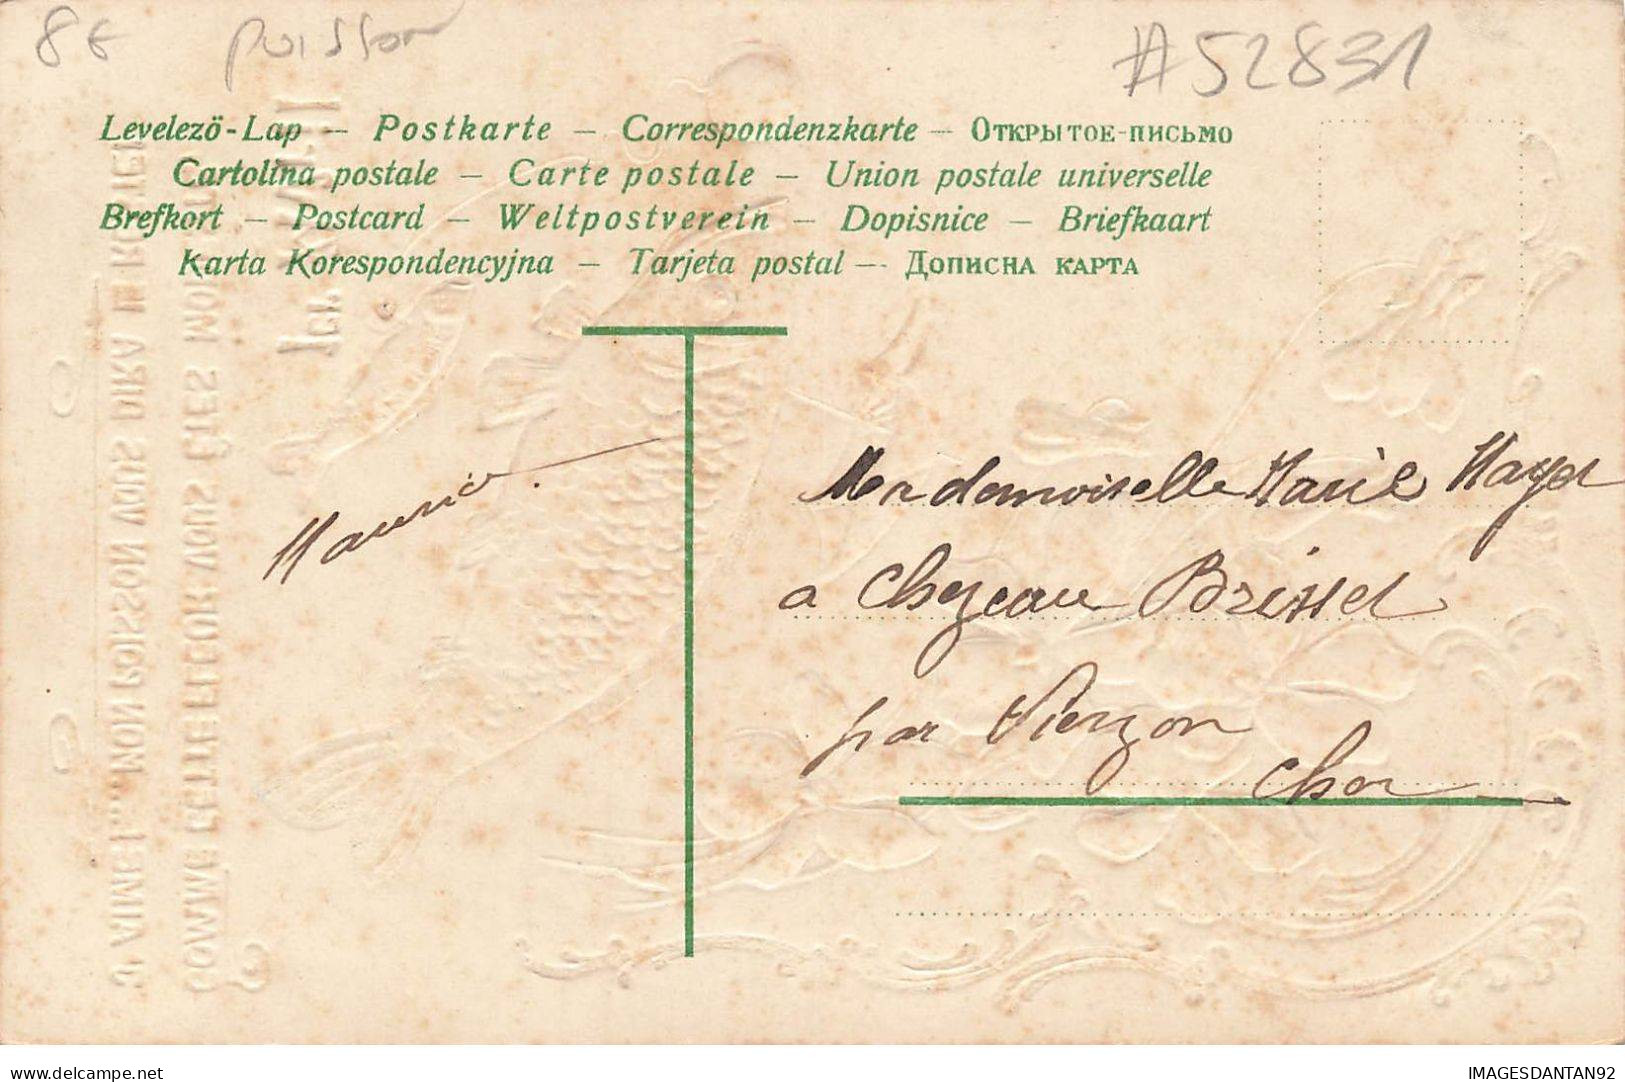 8€ poisson #52831
Levelezö-Lap – Postkarte – Correspondenzkarte – Открытое-письмо
Cartolina postale – Carte postale – Union postale universelle
Brefkort – Postcard – Weltpostverein – Dopisnice – Briefkaart
Karta Korespondencyjna – Tarjeta postal – Дописна карта
Maurice.
Mademoiselle Marie Mayet
a Chezeau Brisset
par Vierzon
Cher
1er AVRIL
COMME CETTE FLEUR VOUS ÊTES
J'AIME!.... MON POISSON VOUS DIRA LE
IMAGESDANTAN92